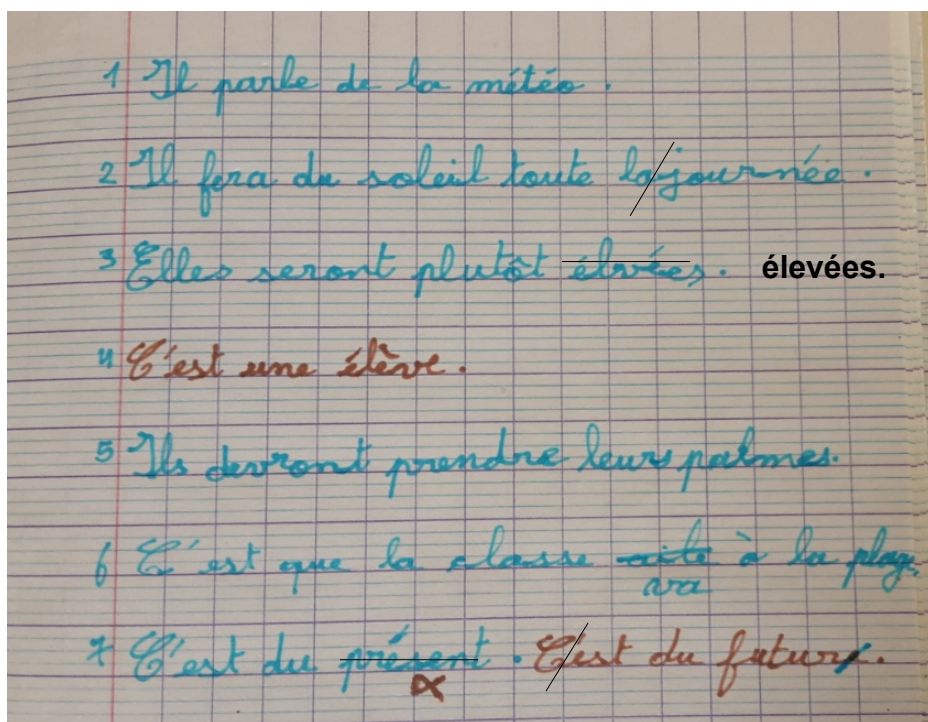 1 Il parle de la météo.
2 Il fera du soleil toute la journée.
3 Elles seront plutôt élvées. élevées.
4 C'est une élève.
5 Ils devront prendre leurs palmes.
6 C'est que la classe à la plage.
va
7 C'est du présent. C'est du futur.